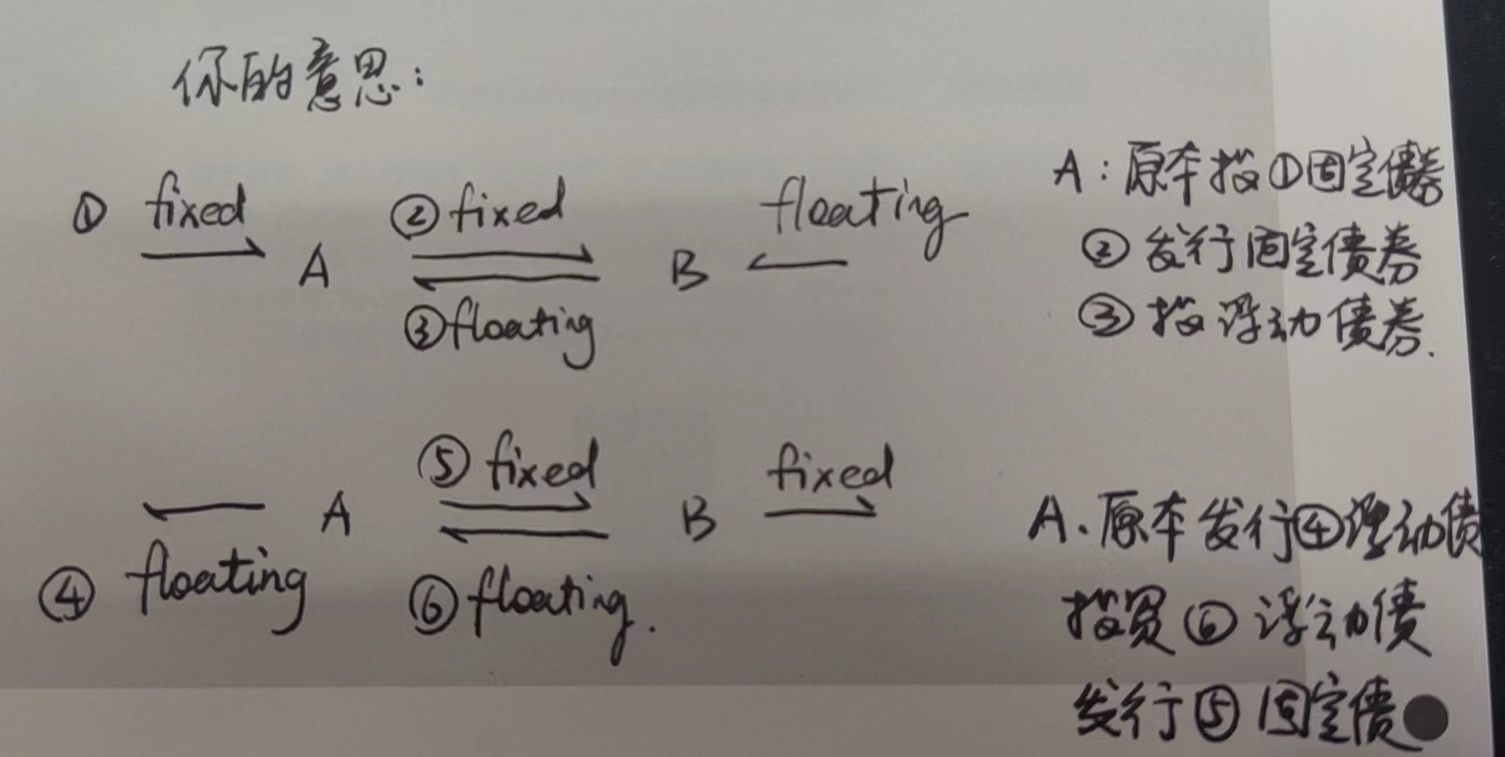 你的意思:
① fixed ②fixed floating
A B
③floating
A:原本投①固定债券
② 发行固定债券
③ 投浮动债券.
⑤ fixed fixed
A B
④ floating ⑥floating.
A、原本发行④浮动债
投资⑥浮动债
发行⑤固定债